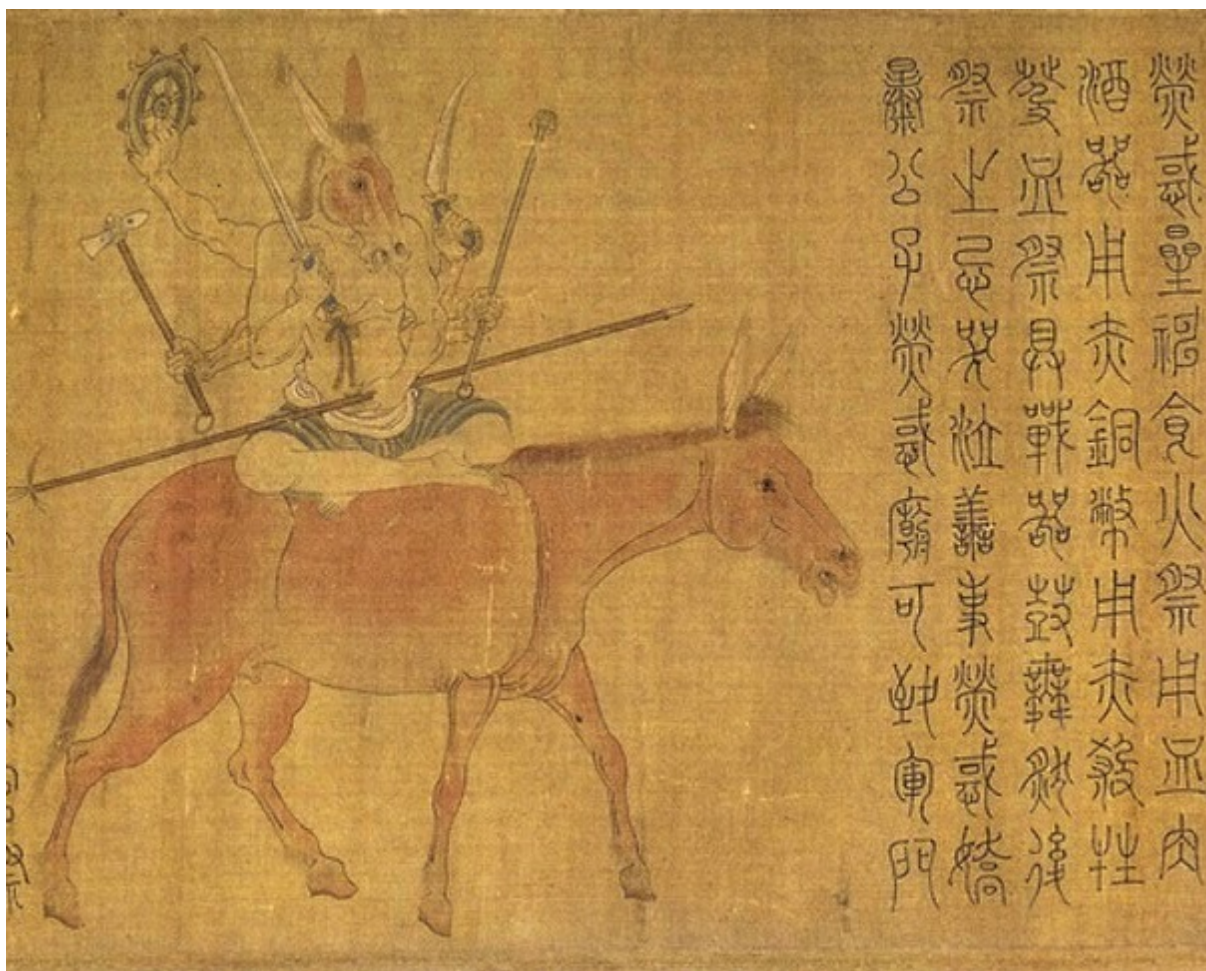 熒惑星神食火祭用血肉
酒器用赤銅幣用赤殺牲
血祭具戰器鼓舞然後
祭之忌哭泣善事熒惑嬌
暴公子熒惑廟可致軍門